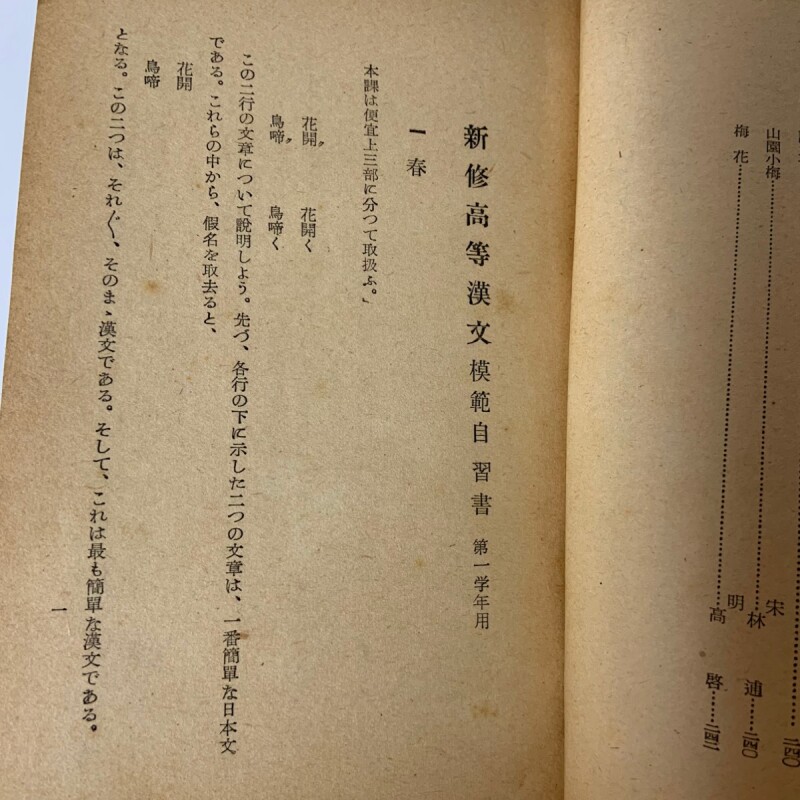 山園小梅……宋 林 逋……二四〇
梅 花……明 高 啓……二四二
新修高等漢文模範自習書 第一学年用
一 春
本課は便宜上三部に分つて取扱ふ。」
花開ク 花開く
鳥啼ク 鳥啼く
この二行の文章について說明しよう。先づ、各行の下に示した二つの文章は、一番簡單な日本文
である。これらの中から、假名を取去ると、
花開
鳥啼
となる。この二つは、それ〴〵、そのまゝ漢文である。そして、これは最も簡單な漢文である。
一